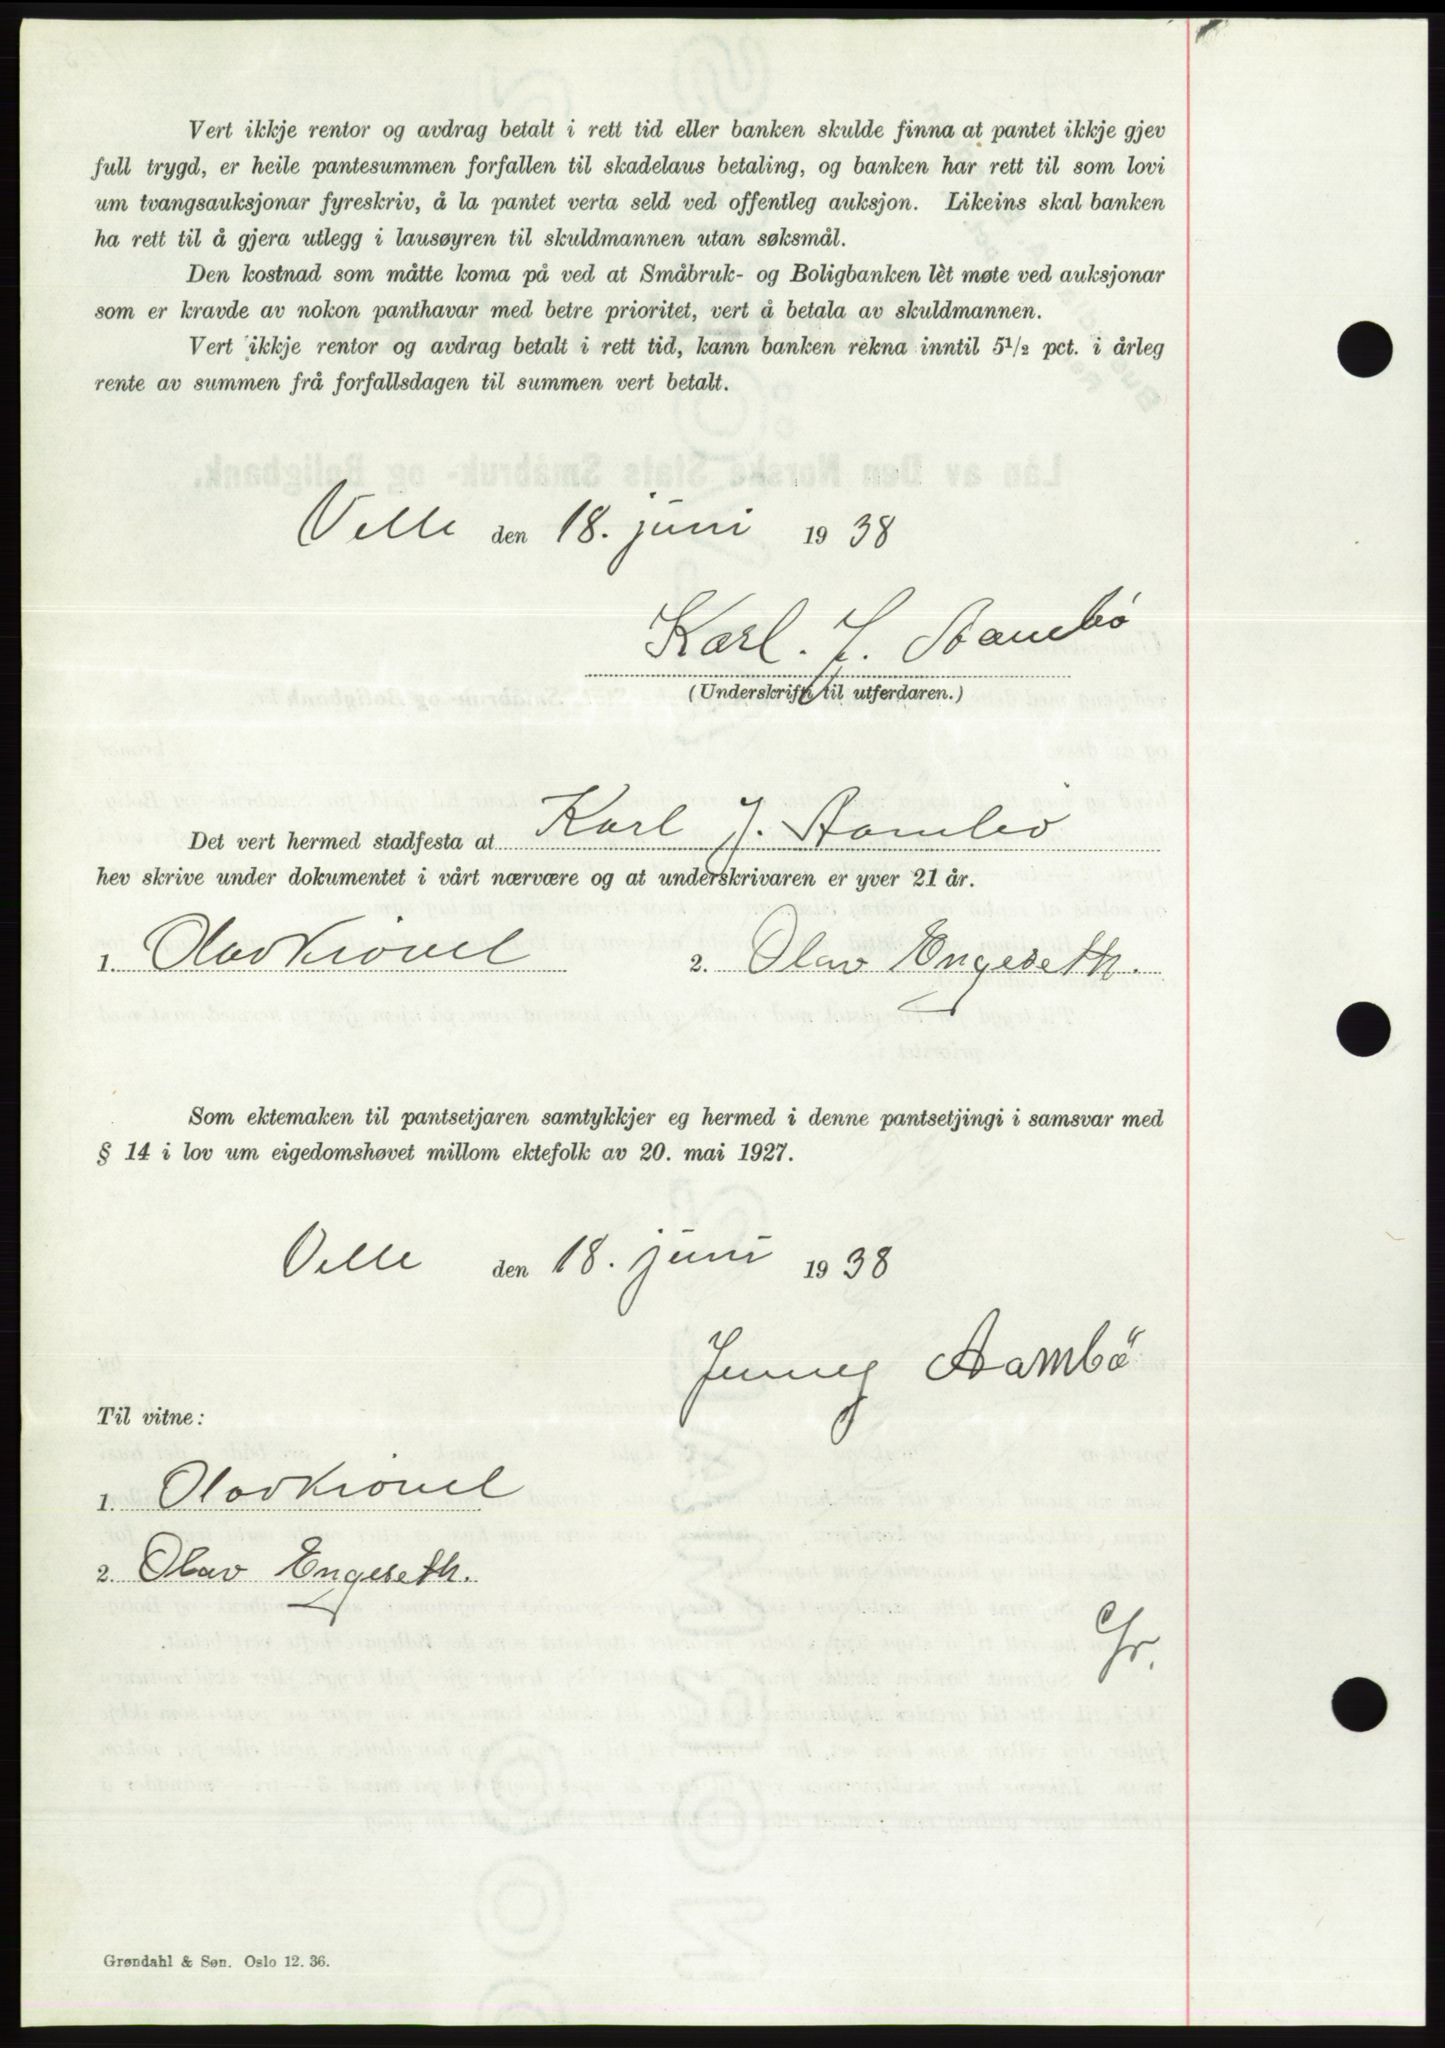 Vert ikkje rentor og avdrag betalt i rett tid eller banken skulde finna at pantet ikkje gjev
full trygd, er heile pantesummen forfallen til skadelaus betaling, og banken har rett til som lovi
um tvangsauksjonar fyreskriv, å la pantet verta seld ved offentleg auksjon. Likeins skal banken
ha rett til å gjera utlegg i lausøyren til skuldmannen utan søksmål.
Den kostnad som måtte koma på ved at Småbruk- og Boligbanken lèt møte ved auksjonar
som er kravde av nokon panthavar med betre prioritet, vert å betala av skuldmannen.
Vert ikkje rentor og avdrag betalt i rett tid, kann banken rekna inntil 5 1/2 pct. i årleg
rente av summen frå forfallsdagen til summen vert betalt.
Lån av Den Norske Stats Småbruk- og Boligbank.
Velle den 18. juni 1938
Karl. J. Aambö
(Underskrift til utferdaren.)
Det vert hermed stadfesta at Karl J. Aambö
hev skrive under dokumentet i vårt nærvære og at underskrivaren er yver 21 år.
1. Olav 2. Olav Engeseth.
Som ektemaken til pantsetjaren samtykkjer eg hermed i denne pantsetjingi i samsvar med
§ 14 i lov um eigedomshøvet millom ektefolk av 20. mai 1927.
Velle den 18. juni 1938
Jenny Aambö
Til vitne:
1. Olav
2. Olav Engeseth.
Gr.
Grøndahl & Søn. Oslo 12. 36.